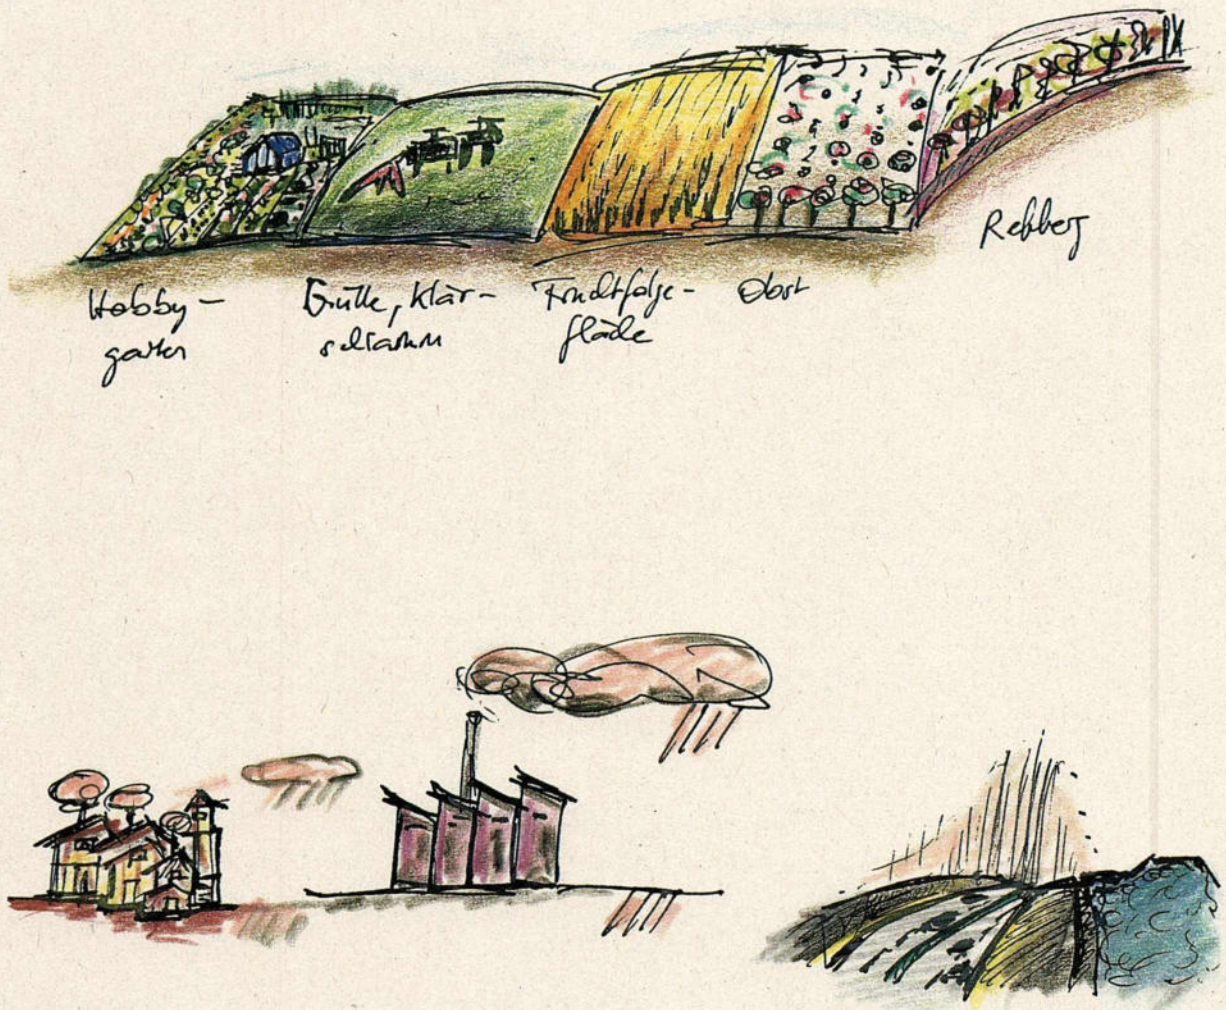 Hobby-
garten
Gülle, Klär-
schlamm
Fruchtfolge-
fläche
Obst
Rebberg